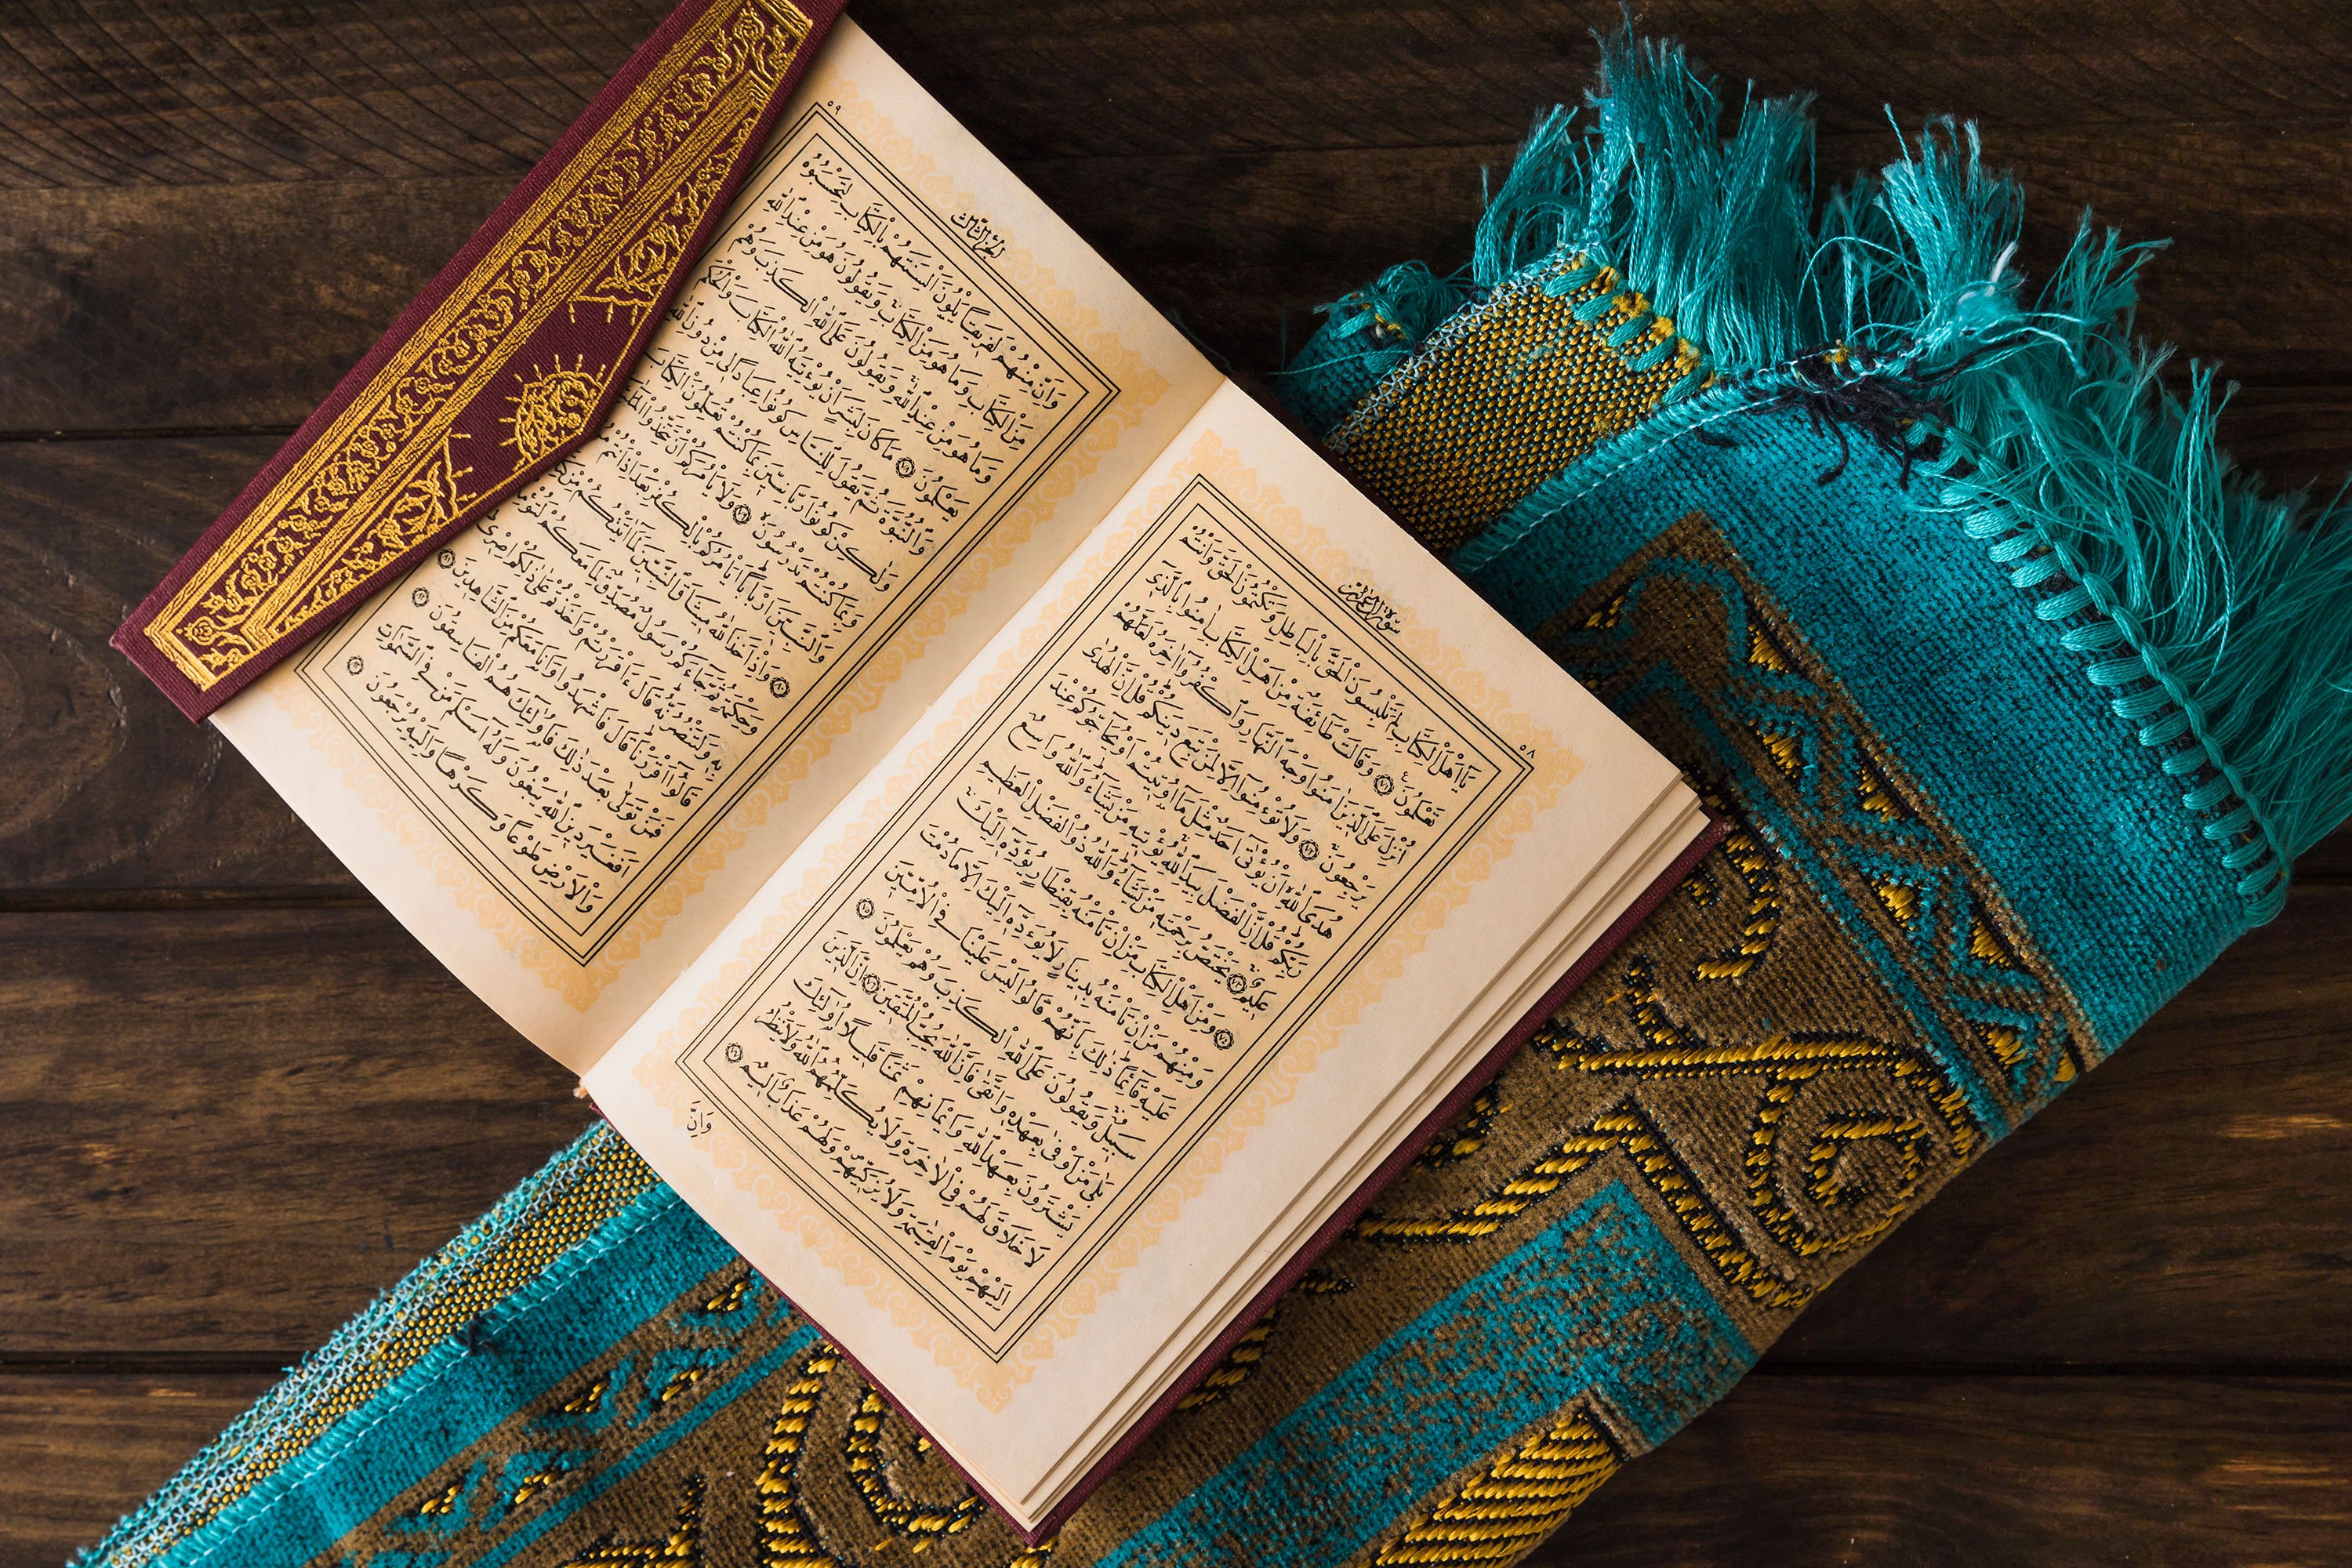 سُورَةُ آلِ عِمْرَانَ
٥٨
يَا أَهْلَ الْكِتَابِ لِمَ تَلْبِسُونَ الْحَقَّ بِالْبَاطِلِ وَتَكْتُمُونَ الْحَقَّ وَأَنْتُمْ
تَعْلَمُونَ ٧١ وَقَالَتْ طَائِفَةٌ مِنْ أَهْلِ الْكِتَابِ اٰمِنُوا بِالَّذِي
أُنْزِلَ عَلَى الَّذِينَ اٰمَنُوا وَجْهَ النَّهَارِ وَاكْفُرُوا اٰخِرَهُ لَعَلَّهُمْ
يَرْجِعُونَ ٧٢ وَلَا تُؤْمِنُوا إِلَّا لِمَنْ تَبِعَ دِينَكُمْ قُلْ إِنَّ الْهُدٰى
هُدَى اللّٰهِ أَنْ يُؤْتٰى أَحَدٌ مِثْلَ مَا أُوتِيتُمْ أَوْ يُحَاجُّوكُمْ عِنْدَ
رَبِّكُمْ قُلْ إِنَّ الْفَضْلَ بِيَدِ اللّٰهِ يُؤْتِيهِ مَنْ يَشَاءُ وَاللّٰهُ وَاسِعٌ
عَلِيمٌ ٧٣ يَخْتَصُّ بِرَحْمَتِهِ مَنْ يَشَاءُ وَاللّٰهُ ذُو الْفَضْلِ الْعَظِيمِ
٧٤ وَمِنْ أَهْلِ الْكِتَابِ مَنْ إِنْ تَأْمَنْهُ بِقِنْطَارٍ يُؤَدِّهِ إِلَيْكَ
وَمِنْهُمْ مَنْ إِنْ تَأْمَنْهُ بِدِينَارٍ لَا يُؤَدِّهِ إِلَيْكَ إِلَّا مَا دُمْتَ
عَلَيْهِ قَائِمًا ذٰلِكَ بِأَنَّهُمْ قَالُوا لَيْسَ عَلَيْنَا فِي الْأُمِّيِّينَ
سَبِيلٌ وَيَقُولُونَ عَلَى اللّٰهِ الْكَذِبَ وَهُمْ يَعْلَمُونَ ٧٥
بَلٰى مَنْ أَوْفٰى بِعَهْدِهِ وَاتَّقٰى فَإِنَّ اللّٰهَ يُحِبُّ الْمُتَّقِينَ ٧٦ إِنَّ الَّذِينَ
يَشْتَرُونَ بِعَهْدِ اللّٰهِ وَأَيْمَانِهِمْ ثَمَنًا قَلِيلًا أُولٰئِكَ
لَا خَلَاقَ لَهُمْ فِي الْاٰخِرَةِ وَلَا يُكَلِّمُهُمُ اللّٰهُ وَلَا يَنْظُرُ
إِلَيْهِمْ يَوْمَ الْقِيٰمَةِ وَلَا يُزَكِّيهِمْ وَلَهُمْ عَذَابٌ أَلِيمٌ ٧٧
وَإِنَّ
الجزء الثالث
٥٩
وَإِنَّ مِنْهُمْ لَفَرِيقًا يَلْوُونَ أَلْسِنَتَهُمْ بِالْكِتَابِ لِتَحْسَبُوهُ
مِنَ الْكِتَابِ وَمَا هُوَ مِنَ الْكِتَابِ وَيَقُولُونَ هُوَ مِنْ عِنْدِ اللّٰهِ
وَمَا هُوَ مِنْ عِنْدِ اللّٰهِ وَيَقُولُونَ عَلَى اللّٰهِ الْكَذِبَ وَهُمْ
يَعْلَمُونَ ٧٨ مَا كَانَ لِبَشَرٍ أَنْ يُؤْتِيَهُ اللّٰهُ الْكِتَابَ وَالْحُكْمَ
وَالنُّبُوَّةَ ثُمَّ يَقُولَ لِلنَّاسِ كُونُوا عِبَادًا لِي مِنْ دُونِ اللّٰهِ
وَلٰكِنْ كُونُوا رَبَّانِيِّينَ بِمَا كُنْتُمْ تُعَلِّمُونَ الْكِتَابَ
وَبِمَا كُنْتُمْ تَدْرُسُونَ ٧٩ وَلَا يَأْمُرَكُمْ أَنْ تَتَّخِذُوا
وَالنَّبِيِّينَ أَرْبَابًا أَيَأْمُرُكُمْ بِالْكُفْرِ بَعْدَ إِذْ أَنْتُمْ
٨٠ وَإِذْ أَخَذَ اللّٰهُ مِيثَاقَ النَّبِيِّينَ لَمَا اٰتَيْتُكُمْ مِنْ
وَحِكْمَةٍ ثُمَّ جَاءَكُمْ رَسُولٌ مُصَدِّقٌ لِمَا مَعَكُمْ
بِهِ وَلَتَنْصُرُنَّهُ قَالَ ءَأَقْرَرْتُمْ وَأَخَذْتُمْ عَلٰى ذٰلِكُمْ إِصْرِي
قَالُوا أَقْرَرْنَا قَالَ فَاشْهَدُوا وَأَنَا مَعَكُمْ مِنَ الشَّاهِدِينَ ٨١
فَمَنْ تَوَلّٰى بَعْدَ ذٰلِكَ فَأُولٰئِكَ هُمُ الْفَاسِقُونَ ٨٢
أَفَغَيْرَ دِينِ اللّٰهِ يَبْغُونَ وَلَهُ أَسْلَمَ مَنْ فِي السَّمٰوَاتِ
وَالْأَرْضِ طَوْعًا وَكَرْهًا وَإِلَيْهِ يُرْجَعُونَ ٨٣